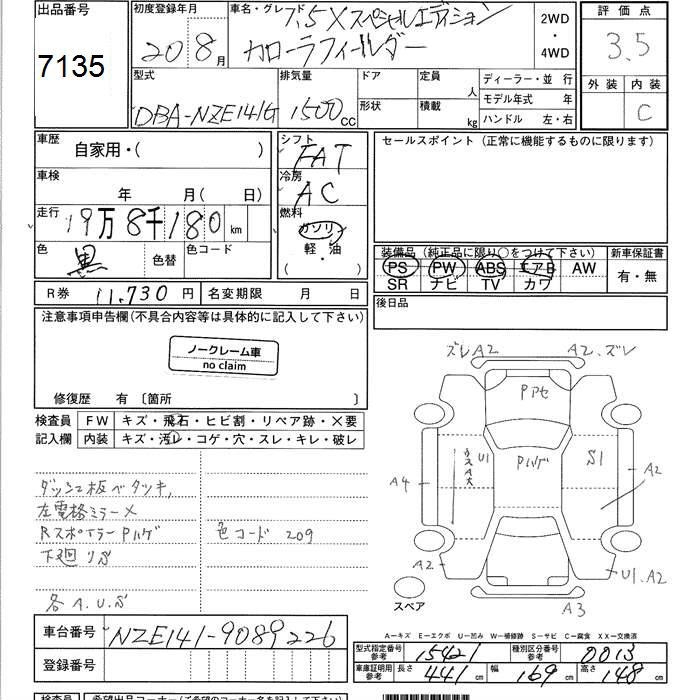 出品番号
7135
初度登録年月
20 8月
車名・グレード
1.5Xスペシャルエディション
カローラフィールダー
2WD
・
4WD
評価点
3.5
外装 内装
C
型式
DBA-NZE141G
排気量
1500cc
ドア
形状
定員
人
積載
kg
ディーラー・並 行
モデル年式 年
ハンドル 左・右
車歴
自家用・( )
車検
年 月( 日)
走行
19万8千180km
色
黒
色替
色コード
シフト
FAT
冷房
AC
燃料
ガソリン
軽・油
( ・ )
セールスポイント(正常に機能するものに限ります)
装備品(純正品に限り〇をつけて下さい)
PS PW ABS エアB AW
SR ナビ TV カワ
新車保証書
有・無
後日品
R券 11,730円
名変期限 月 日
注意事項申告欄(不具合内容等は具体的に記入して下さい)
ノークレーム車
no claim
修復歴 有〔箇所 〕
検査員
記入欄
FW キズ・飛石・ヒビ割・リペア跡・X要
内装 キズ・汚レ・コゲ・穴・スレ・キレ・破レ
ダッシュ板ベタツキ,
左電格ミラー×
RスポイラーPハゲ
下廻リS
各A.U.S
色コード 209
ズレ A2
A2.ズレ
Pアセ
Pハゲ
U1
S1
A4
A2
A2
U1.A2
A3
スペア
A-キズ E-エクボ U-凹み W-補修跡 S-サビ C-腐食 XX-交換済
車台番号
NZE141-9089226
登録番号
型式指定番号
参考
15421
種別区分番号
参考
0013
車庫証明用
参考
長さ 441cm
幅 169cm
高さ 148cm
検査員
希望出品コーナー(ご希望のコーナー名を記入して下さい)